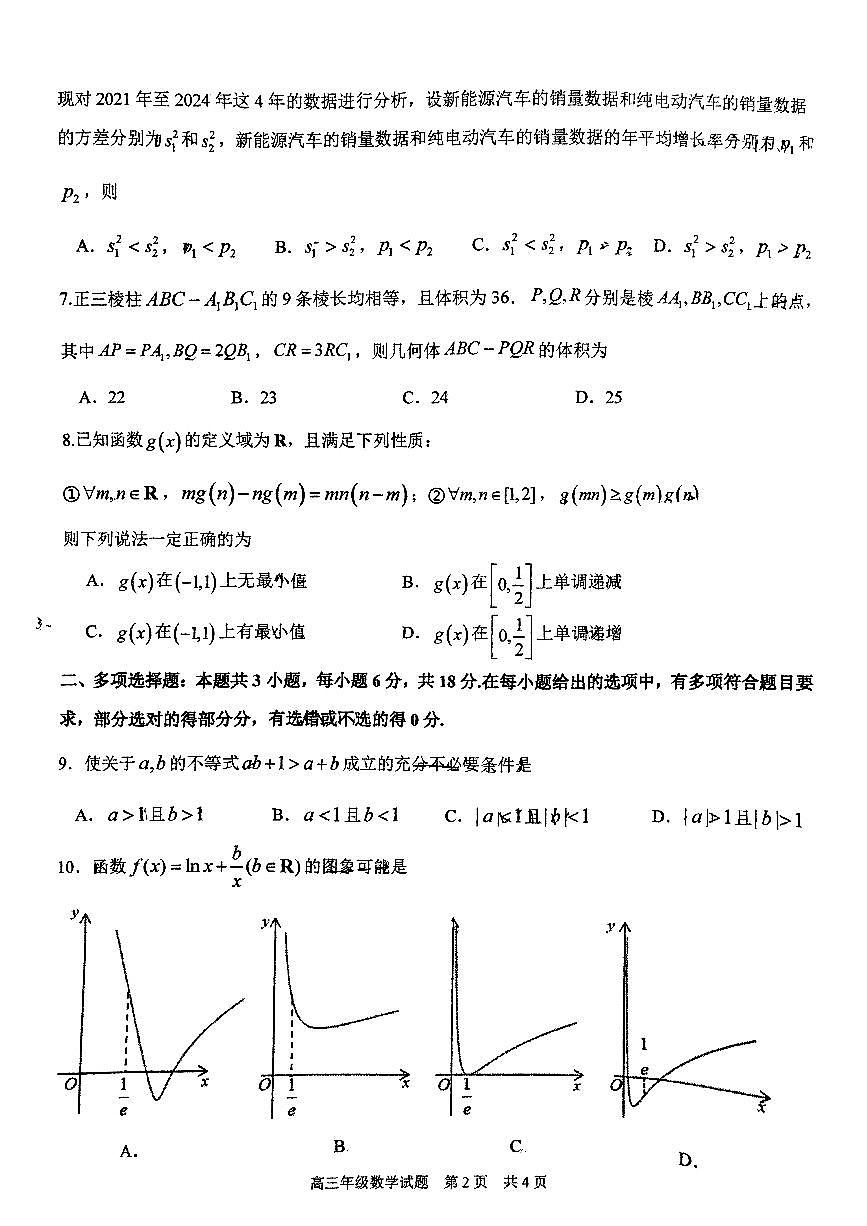 现对 2021 年至 2024 年这 4 年的数据进行分析，设新能源汽车的销量数据和纯电动汽车的销量数据
的方差分别为 s₁² 和 s₂²，新能源汽车的销量数据和纯电动汽车的销量数据的年平均增长率分别为 p₁ 和
p₂，则
A．s₁² < s₂²，p₁ < p₂ B．s₁² > s₂²，p₁ < p₂ C．s₁² < s₂²，p₁ > p₂ D．s₁² > s₂²，p₁ > p₂
7.正三棱柱 ABC－A₁B₁C₁ 的 9 条棱长均相等，且体积为 36．P,Q,R 分别是棱 AA₁,BB₁,CC₁ 上的点，
其中 AP = PA₁, BQ = 2QB₁，CR = 3RC₁，则几何体 ABC－PQR 的体积为
A．22 B．23 C．24 D．25
8.已知函数 g(x) 的定义域为 R，且满足下列性质：
①∀m,n∈R，mg(n)－ng(m)＝mn(n－m)；②∀m,n∈[1,2]，g(mn)≥g(m)g(n)
则下列说法一定正确的为
A．g(x)在(－1,1)上无最小值 B．g(x)在[0,1/2]上单调递减
3~
C．g(x)在(－1,1)上有最小值 D．g(x)在[0,1/2]上单调递增
二、多项选择题：本题共 3 小题，每小题 6 分，共 18 分.在每小题给出的选项中，有多项符合题目要
求，部分选对的得部分分，有选错或不选的得 0 分.
9．使关于 a,b 的不等式 ab+1>a+b 成立的充分不必要条件是
A．a>1且b>1 B．a<1且b<1 C．|a|<1且|b|<1 D．|a|>1且|b|>1
10．函数 f(x)=ln x+b/x (b∈R) 的图象可能是
y O 1/e x
y O 1/e x
O 1/e x
y O 1/e x
A． B. C. D.
高三年级数学试题 第 2 页 共 4 页